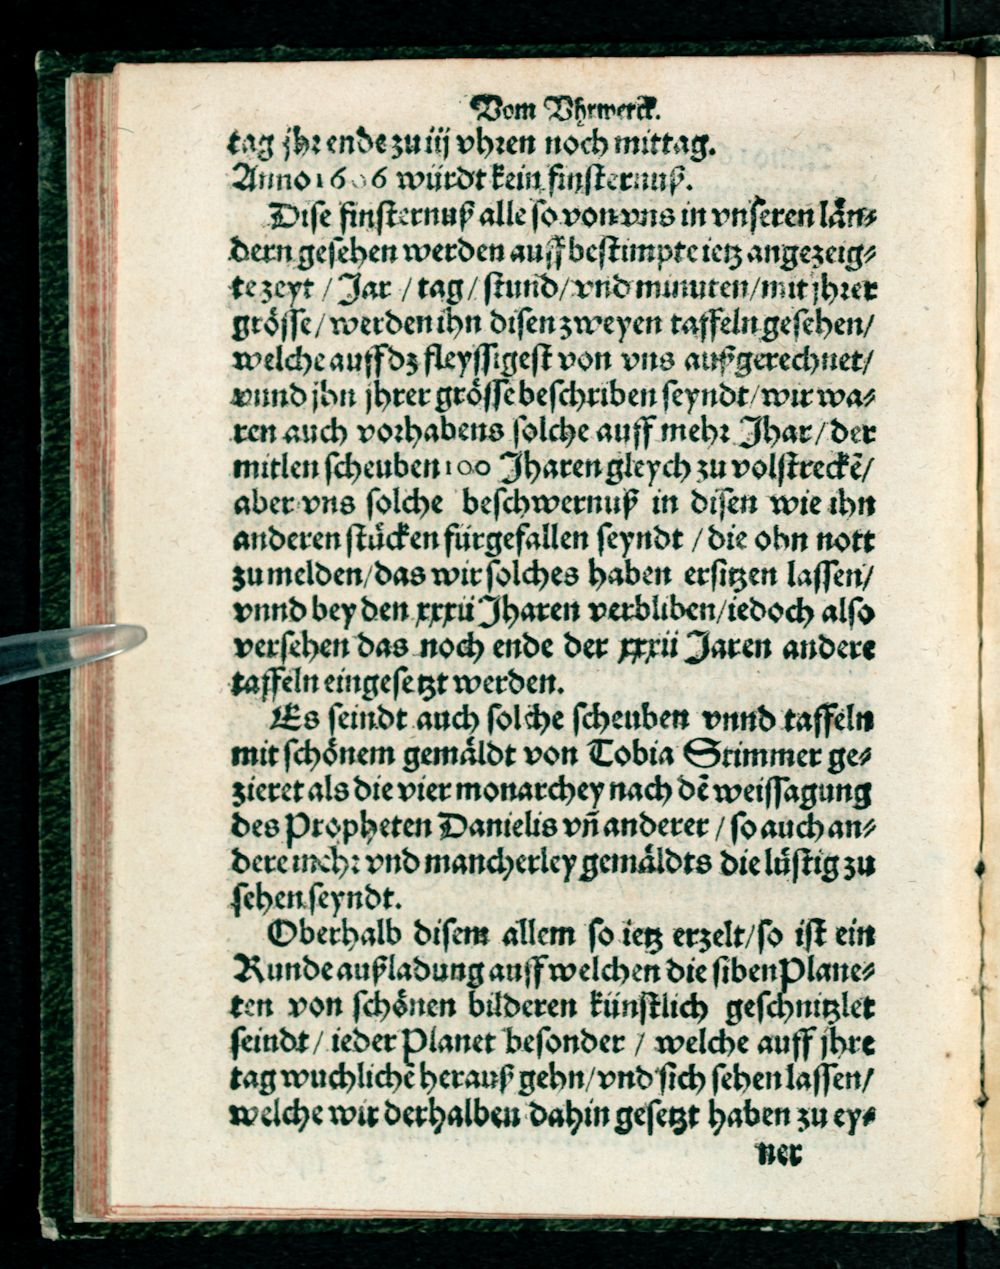 Vom Vhrwerck.
tag jhr ende zu iij vhren noch mittag.
Anno 1606 würdt kein finsternuß.
Dise finsternuß alle so von vns in vnseren län⸗
dern gesehen werden auff bestimpte ietz angezeig⸗
te zeyt / Jar / tag / stund / vnd minuten / mit jhrer
grösse / werden ihn disen zweyen taffeln gesehen /
welche auff dz fleyssigest von vns außgerechnet /
vnnd jhn jhrer grösse beschriben seyndt / wir wa⸗
ren auch vorhabens solche auff mehr Jhar / der
mitlen scheuben 100 Jharen gleych zu volstreckē /
aber vns solche beschwernuß in disen wie ihn
anderen stücken fürgefallen seyndt / die ohn nott
zu melden / das wir solches haben ersitzen lassen /
vnnd bey den xxxii Jharen verbliben / iedoch also
versehen das noch ende der xxxii Jaren andere
taffeln eingesetzt werden.
Es seindt auch solche scheuben vnnd taffeln
mit schönem gemäldt von Tobia Stimmer ge⸗
zieret als die vier monarchey nach dē weissagung
des Propheten Danielis vñ anderer / so auch an⸗
dere mehr vnd mancherley gemäldts die lüstig zu
sehen seyndt.
Oberhalb disem allem so ietz erzelt / so ist ein
Runde außladung auff welchen die siben Plane⸗
ten von schönen bilderen künstlich geschnitzlet
seindt / ieder Planet besonder / welche auff jhre
tag wuchlichē herauß gehn / vnd sich sehen lassen /
welche wir derhalben dahin gesetzt haben zu ey⸗
ner